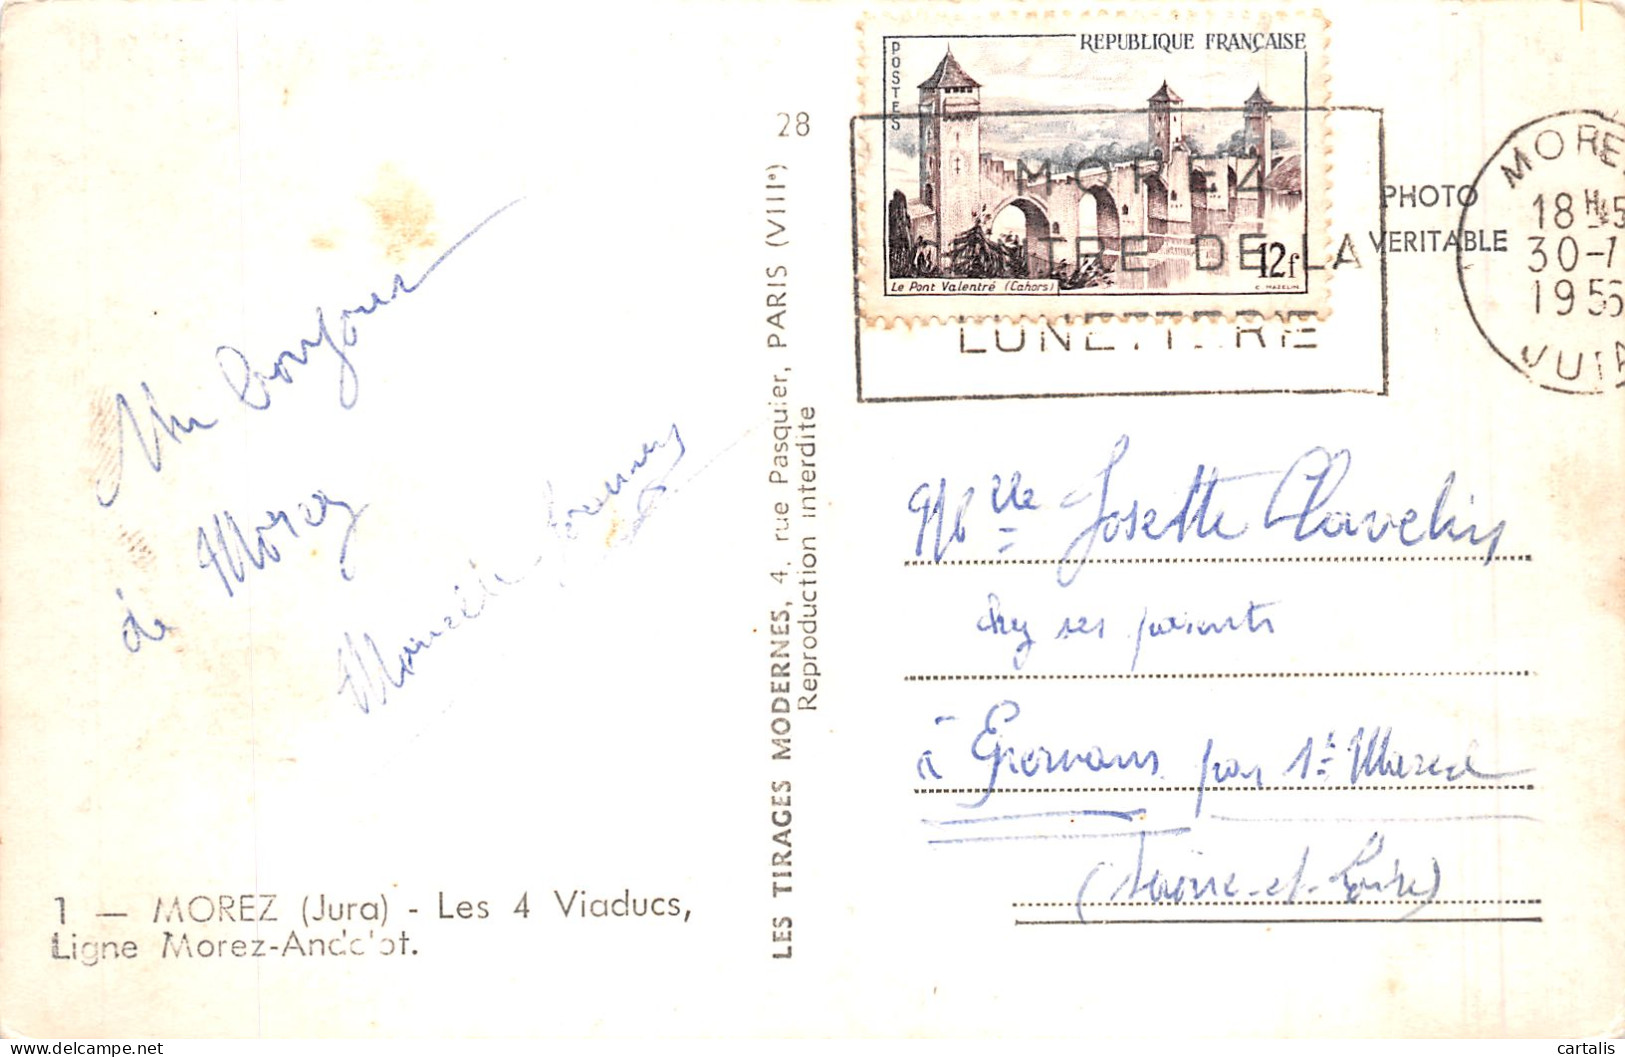 Un bonjour
de Morez
1 — MOREZ (Jura) - Les 4 Viaducs,
Ligne Morez-Andelot.
28
LES TIRAGES MODERNES, 4, rue Pasquier, PARIS (VIIIe)
Reproduction interdite
POSTES
REPUBLIQUE FRANÇAISE
Le Pont Valentré (Cahors)
12f
C. MAZELIN
MOREZ
CENTRE DE LA
LUNETTERIE
PHOTO
VERITABLE
MOREZ
18 H45
30-7
195
JURA
Mlle Josette Clavelin
chez ses parents
à par St Marcel
(Saône-et-Loire)
cartalis
delcampe.net